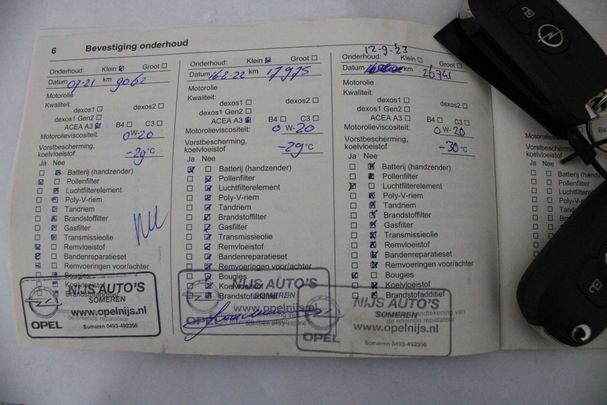 6 Bevestiging onderhoud
Onderhoud: Klein Groot
Datum 07-21 km 9062
Motorolie
Kwaliteit:
dexos1 dexos2
dexos1 Gen2
ACEA A3 B4 C3
Motorolieviscositeit: 0 W-20
Vorstbescherming,
koelvloeistof -29 °C
Ja Nee
Batterij (handzender)
Pollenfilter
Luchtfilterelement
Poly-V-riem
Tandriem
Brandstoffilter
Gasfilter
Transmissieolie
Remvloeistof
Bandenreparatieset
Remvoeringen voor/achter
NIJS AUTO'S
SOMEREN
www.opelnijs.nl
OPEL
Someren 0493-492356
Onderhoud: Klein Groot
Datum 16.8.22 km 17975
Motorolie
Kwaliteit:
dexos1 dexos2
dexos1 Gen2
ACEA A3 B4 C3
Motorolieviscositeit: 0 W-20
Vorstbescherming,
koelvloeistof -29 °C
Ja Nee
Batterij (handzender)
Pollenfilter
Luchtfilterelement
Poly-V-riem
Tandriem
Brandstoffilter
Gasfilter
Transmissieolie
Remvloeistof
Bandenreparatieset
Remvoeringen voor/achter
Bougies
Koelvloeistof
Brandstofadditief
NIJS AUTO'S
SOMEREN
www.opelnijs.nl
OPEL
12-9-23
Onderhoud: Klein Groot
Datum km 26741
Motorolie
Kwaliteit:
dexos1 dexos2
dexos1 Gen2
ACEA A3 B4 C3
Motorolieviscositeit: 0 W-20
Vorstbescherming,
koelvloeistof -30 °C
Ja Nee
Batterij (handzender)
Pollenfilter
Luchtfilterelement
Poly-V-riem
Tandriem
Brandstoffilter
Gasfilter
Transmissieolie
Remvloeistof
Bandenreparatieset
Remvoeringen voor/achter
Bougies
Koelvloeistof
Brandstofadditief
NIJS AUTO'S
SOMEREN
www.opelnijs.nl
OPEL
Someren 0493-492356